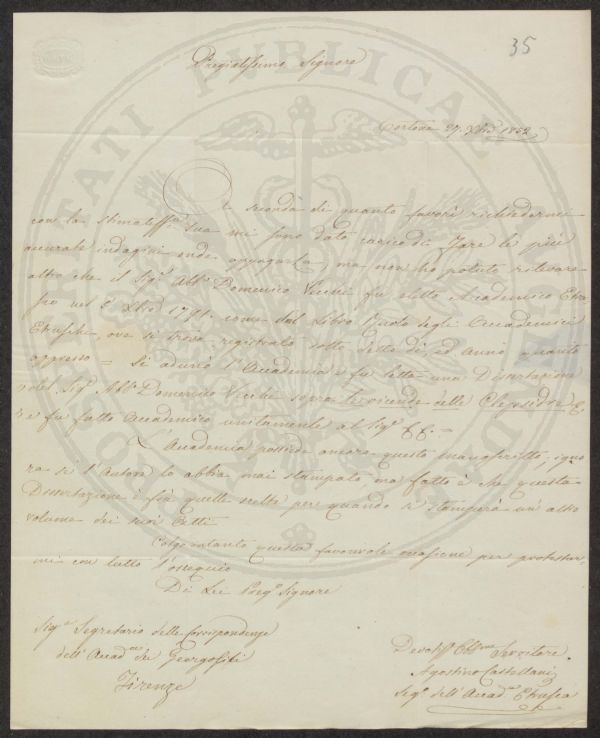 35
Pregiatissimo Signore
Cortona 27. Xbre 1852
A seconda di quanto favorì richiedermi
con la stimatiss.ma sua mi sono dato carico di fare le più
accurate indagini onde appagarla, ma non ho potuto rilevare
altro che il Sig.r Abb.e Domenico Vecchi fu eletto Accademico Etru
sco nel 8 Xbre 1791. come dal Libro Ruolo degli Accademici
Etruschi, ove si trova registrato sotto detto dì, ed anno quanto
appresso = Si adunò l'Accademia e fu letta una Dissertazione
del Sig.r Ab.e Domenico Vecchi sopra le vicende delle Clepsidre &
e fu fatto Accademico unitamente al Sig.r
L'Accademia possiede ancora questo manoscritto, igno
ra se l'Autore lo abbia mai stampato, ma fatto è che questa
Dissertazione è fra quelle scelte per quando si stamperà un altro
volume dei suoi Atti.
Colgo intanto questa favorevole occasione per protestar
mi con tutto l'ossequio
Di Lei Preg.o Signore
Sig.r Segretario delle Corrispondenze
dell'Accad.a dei Georgofili
Firenze
Devotis. Obb.mo Servitore
Agostino Castellani
Seg.o dell'Accad.a Etrusca
PROSPERITATI PUBLICAE AUGENDAE